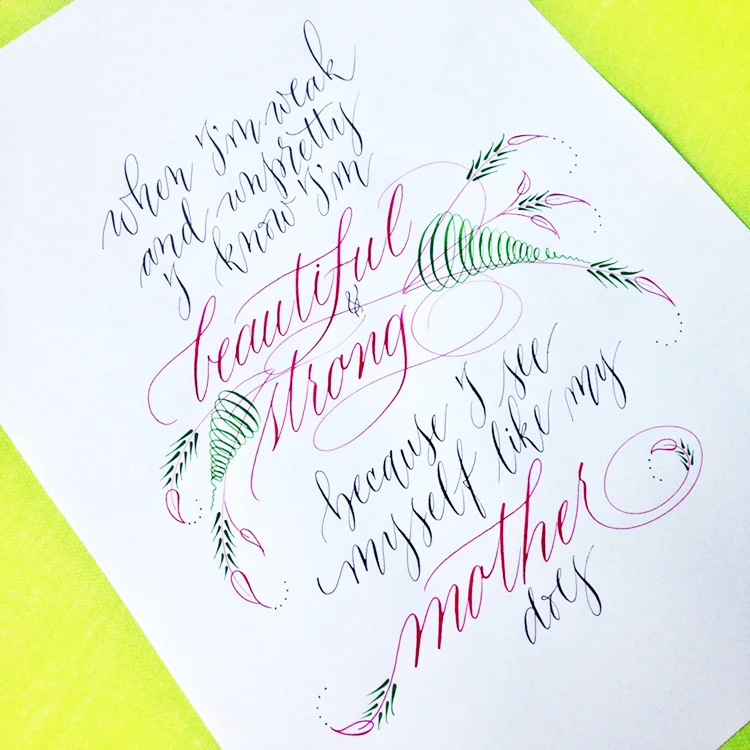 when I'm weak
and unpretty
I know I'm
beautiful
&
strong
because I see
myself like my
mother
does